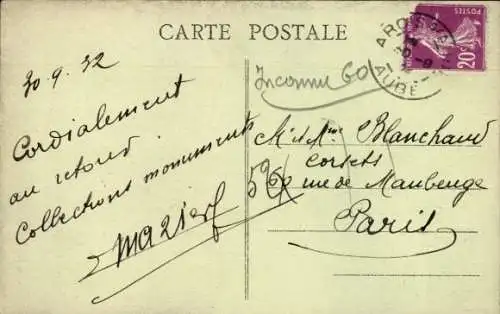 CARTE POSTALE
POSTES
20c
ARCIS
AUBE
30.9.32
Inconnu 60
Cordialement
au retour.
Collections monuments
M. et Mme Blanchaud
corsets
rue de Maubeuge
Paris